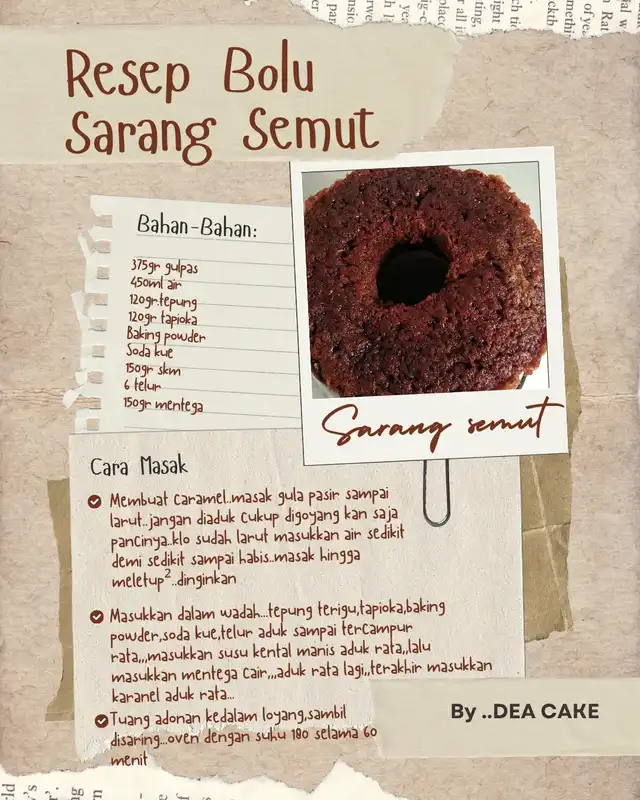 Resep Bolu
Sarang Semut
Bahan-Bahan:
375gr gulpas
450ml air
120gr.tepung
120gr tapioka
Baking powder
Soda kue
150gr skm
6 telur
150gr mentega
Sarang semut
Cara Masak
Membuat caramel..masak gula pasir sampai
larut..jangan diaduk cukup digoyang kan saja
pancinya..klo sudah larut masukkan air sedikit
demi sedikit sampai habis..masak hingga
meletup²..dinginkan
Masukkan dalam wadah...tepung terigu,tapioka,baking
powder,soda kue,telur aduk sampai tercampur
rata,,,masukkan susu kental manis aduk rata,,lalu
masukkan mentega cair,,,aduk rata lagi,,terakhir masukkan
karanel aduk rata...
Tuang adonan kedalam loyang,sambil
disaring...oven dengan suhu 180 selama 60
menit
By ..DEA CAKE